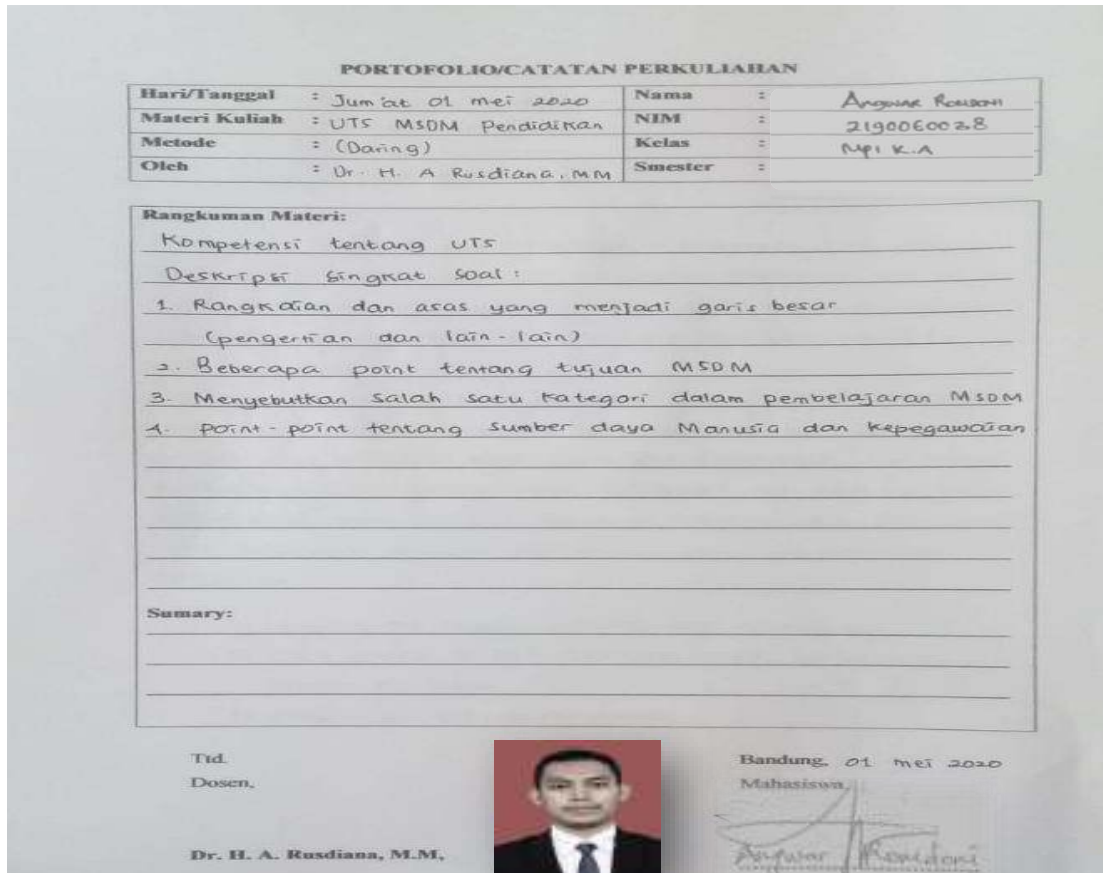 PORTOFOLIO/CATATAN PERKULIAHAN
Hari/Tanggal : Jum'at 01 mei 2020 Nama :
Materi Kuliah : UTS MSDM Pendidikan NIM : 2190060028
Metode : (Daring) Kelas : MPI K.A
Oleh : Dr. H. A Rusdiana, MM Smester :
Rangkuman Materi:
Kompetensi tentang UTS
Deskripsi singkat soal :
1. Rangkaian dan asas yang menjadi garis besar
(pengertian dan lain-lain)
2. Beberapa point tentang tujuan MSDM
3. Menyebutkan salah satu kategori dalam pembelajaran MSDM
4. point-point tentang sumber daya Manusia dan kepegawaian
Sumary:
Ttd.
Dosen,
Dr. H. A. Rusdiana, M.M,
Bandung, 01 mei 2020
Mahasiswa,